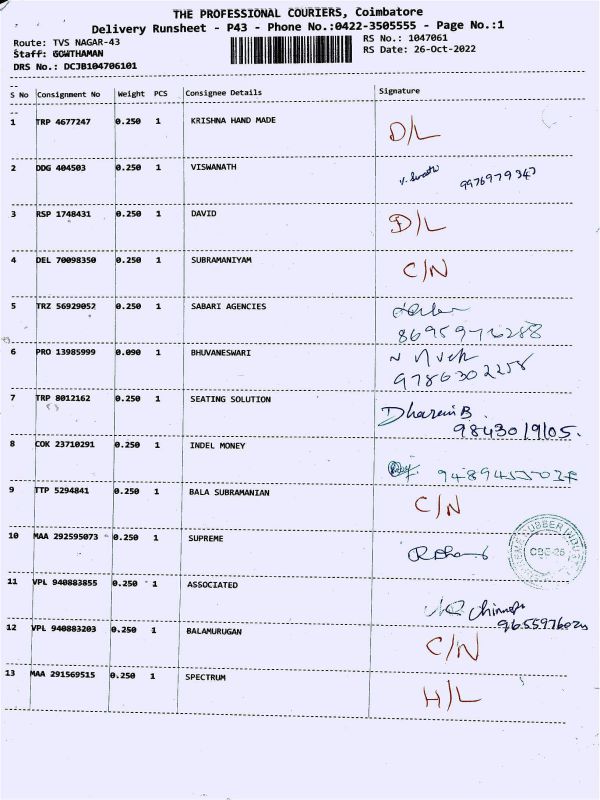 THE PROFESSIONAL COURIERS, Coimbatore
Delivery Runsheet - P43 - Phone No.:0422-3505555 - Page No.:1
Route: TVS NAGAR-43 RS No.: 1047061
Staff: GOWTHAMAN RS Date: 26-Oct-2022
DRS No.: DCJB104706101
S No Consignment No Weight PCS Consignee Details Signature
1 TRP 4677247 0.250 1 KRISHNA HAND MADE D/L
2 DDG 404503 0.250 1 VISWANATH 9976979347
3 RSP 1748431 0.250 1 DAVID D/L
4 DEL 70098350 0.250 1 SUBRAMANIYAM C/N
5 TRZ 56929052 0.250 1 SABARI AGENCIES
6 PRO 13985999 0.090 1 BHUVANESWARI
9786302258
7 TRP 8012162 0.250 1 SEATING SOLUTION
9843019105.
8 COK 23710291 0.250 1 INDEL MONEY
9 TTP 5294841 0.250 1 BALA SUBRAMANIAN C/N
10 MAA 292595073 0.250 1 SUPREME CBE-25
11 VPL 940883855 0.250 1 ASSOCIATED
12 VPL 940883203 0.250 1 BALAMURUGAN C/N
13 MAA 291569515 0.250 1 SPECTRUM H/L